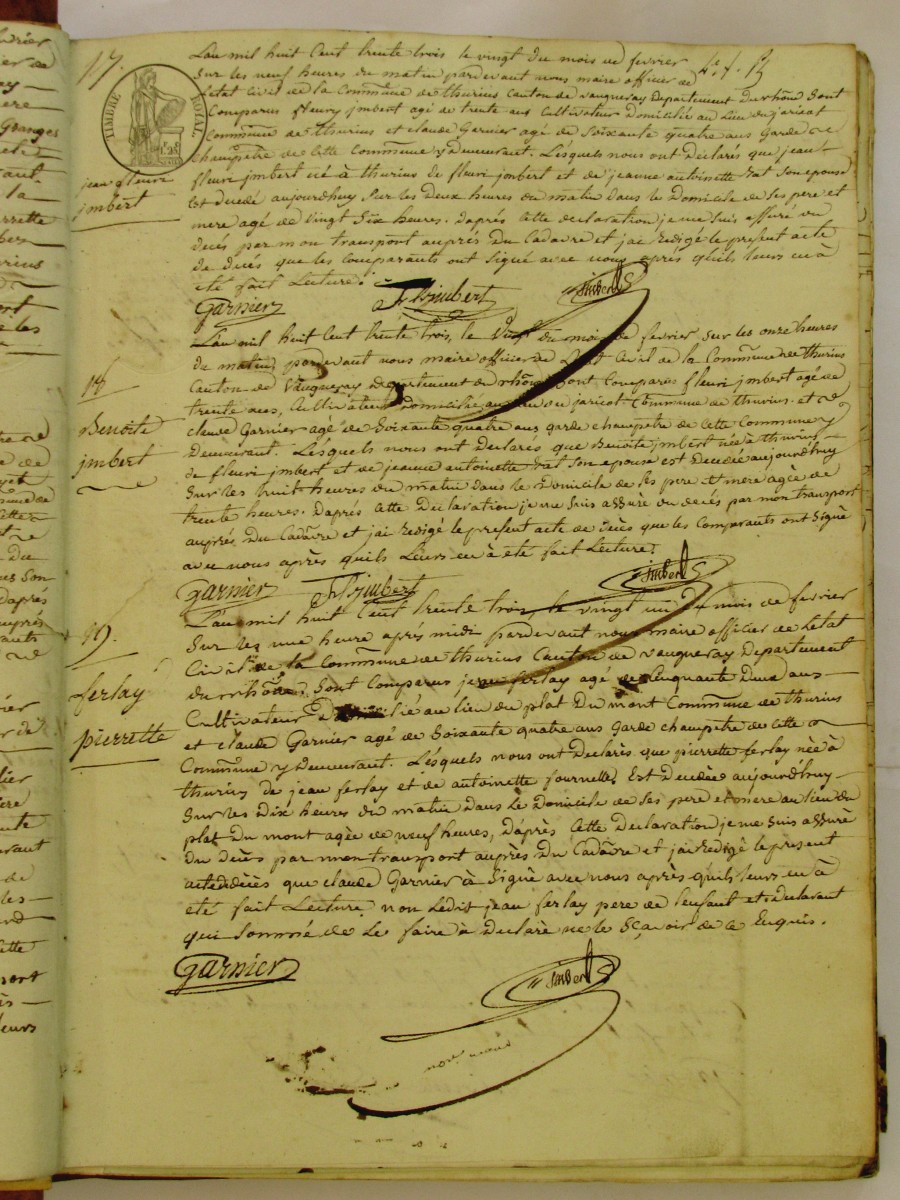 17.
4e. f. 13
TIMBRE ROYAL
1828
jean fleuri
imbert
L'an mil huit Cent trente trois le vingt du mois de fevrier
Sur les neuf heures du matin pardevant nous maire officier de
l'état Civil de la Commune de thurins Canton de vaugneray Departement du rhône Sont
Comparus fleury jmbert agé de trente ans Cultivateur Domicilié au Lieu du jaricot
Commune de thurins et claude Garnier agé de Soixante quatre ans Garde
champêtre de Cette Commune y demeurant. Lésquels nous ont Déclarés que jean
fleuri jmbert né à thurins de fleuri jmbert et de jeanne antoinette rat Son epouse
Est Décedé aujourdhuy Sur les Deux heures du matin dans le Domicile de Ses pere et
mere agé de Vingt Six heures. Daprés Cette declaration je me Suis assuré du
decés par mon transport auprés Du Cadavre et jai redigé le present acte
de décés que les Comparants ont Signé avec nous aprés quils leurs en à
été fait Lecture.
Garnier fs jmbert imbert
18
Benoite
jmbert
L'an mil huit Cent trente trois, le Vingt du mois de fevrier Sur les onze heures
du matin, pardevant nous maire officier de L'état Civil de la Commune de thurins
Canton de Vaugneray departement du rhône Sont Comparus fleuri jmbert agé de
trente ans, Cultivateur Domicilié au Lieu du jaricot Commune de thurins et
claude Garnier agé de Soixante quatre ans garde champetre de Cette Commune y
Demeurant. Lésquels nous ont Declarés que Benoite jmbert née à thurins
de fleuri jmbert et de jeanne antoinette rat Son epouse est Decedée aujourdhuy
Sur les huit heures du matin dans le Domicile de Ses pere et mere agée de
trente heures. Daprés Cette Declaration je me Suis assuré du decés par mon transport
auprés Du Cadâvre et jai redigé le present acte de decés que les Comparants ont Signé
avec nous aprés quils Leurs en à été fait Lecture.
garnier fs jmbert imbert
19.
ferlay
pierrette
L'an mil huit Cent trente trois, le vingt un du mois de fevrier
Sur les une heure aprés midi pardevant nous maire officier de L'état
Civil de la Commune de thurins Canton de vaugneray Departement
du rhône, Sont Comparus jean ferlay agé de Cinquante Deux ans
Cultivateur Domicilié au lieu du plat Du mont Commune de thurins
et claude Garnier agé de Soixante quatre ans Garde champetre de Cette
Commune y Demeurant. Lésquels nous ont Declarés que pierrette ferlay née à
thurins de jean ferlay et de antoinette fournelle, Est Decedée aujourdhuy
Sur les Dix heures du matin Dans Le Domicile de Ses pere et mere au lieu du
plat Du mont agée de neuf heures, Daprés Cette Declaration je me Suis assuré
Du decés par mon transport auprés Du Cadâvre et jai redigé le present
acte de décés que claude Garnier à Signé avec nous aprés quils leurs en à
été fait Lecture, non Ledit jean ferlay pere de lenfant et Declarant
qui Sommé de Le faire à Declaré ne le Sçavoir de ce Enquis.
garnier imbert